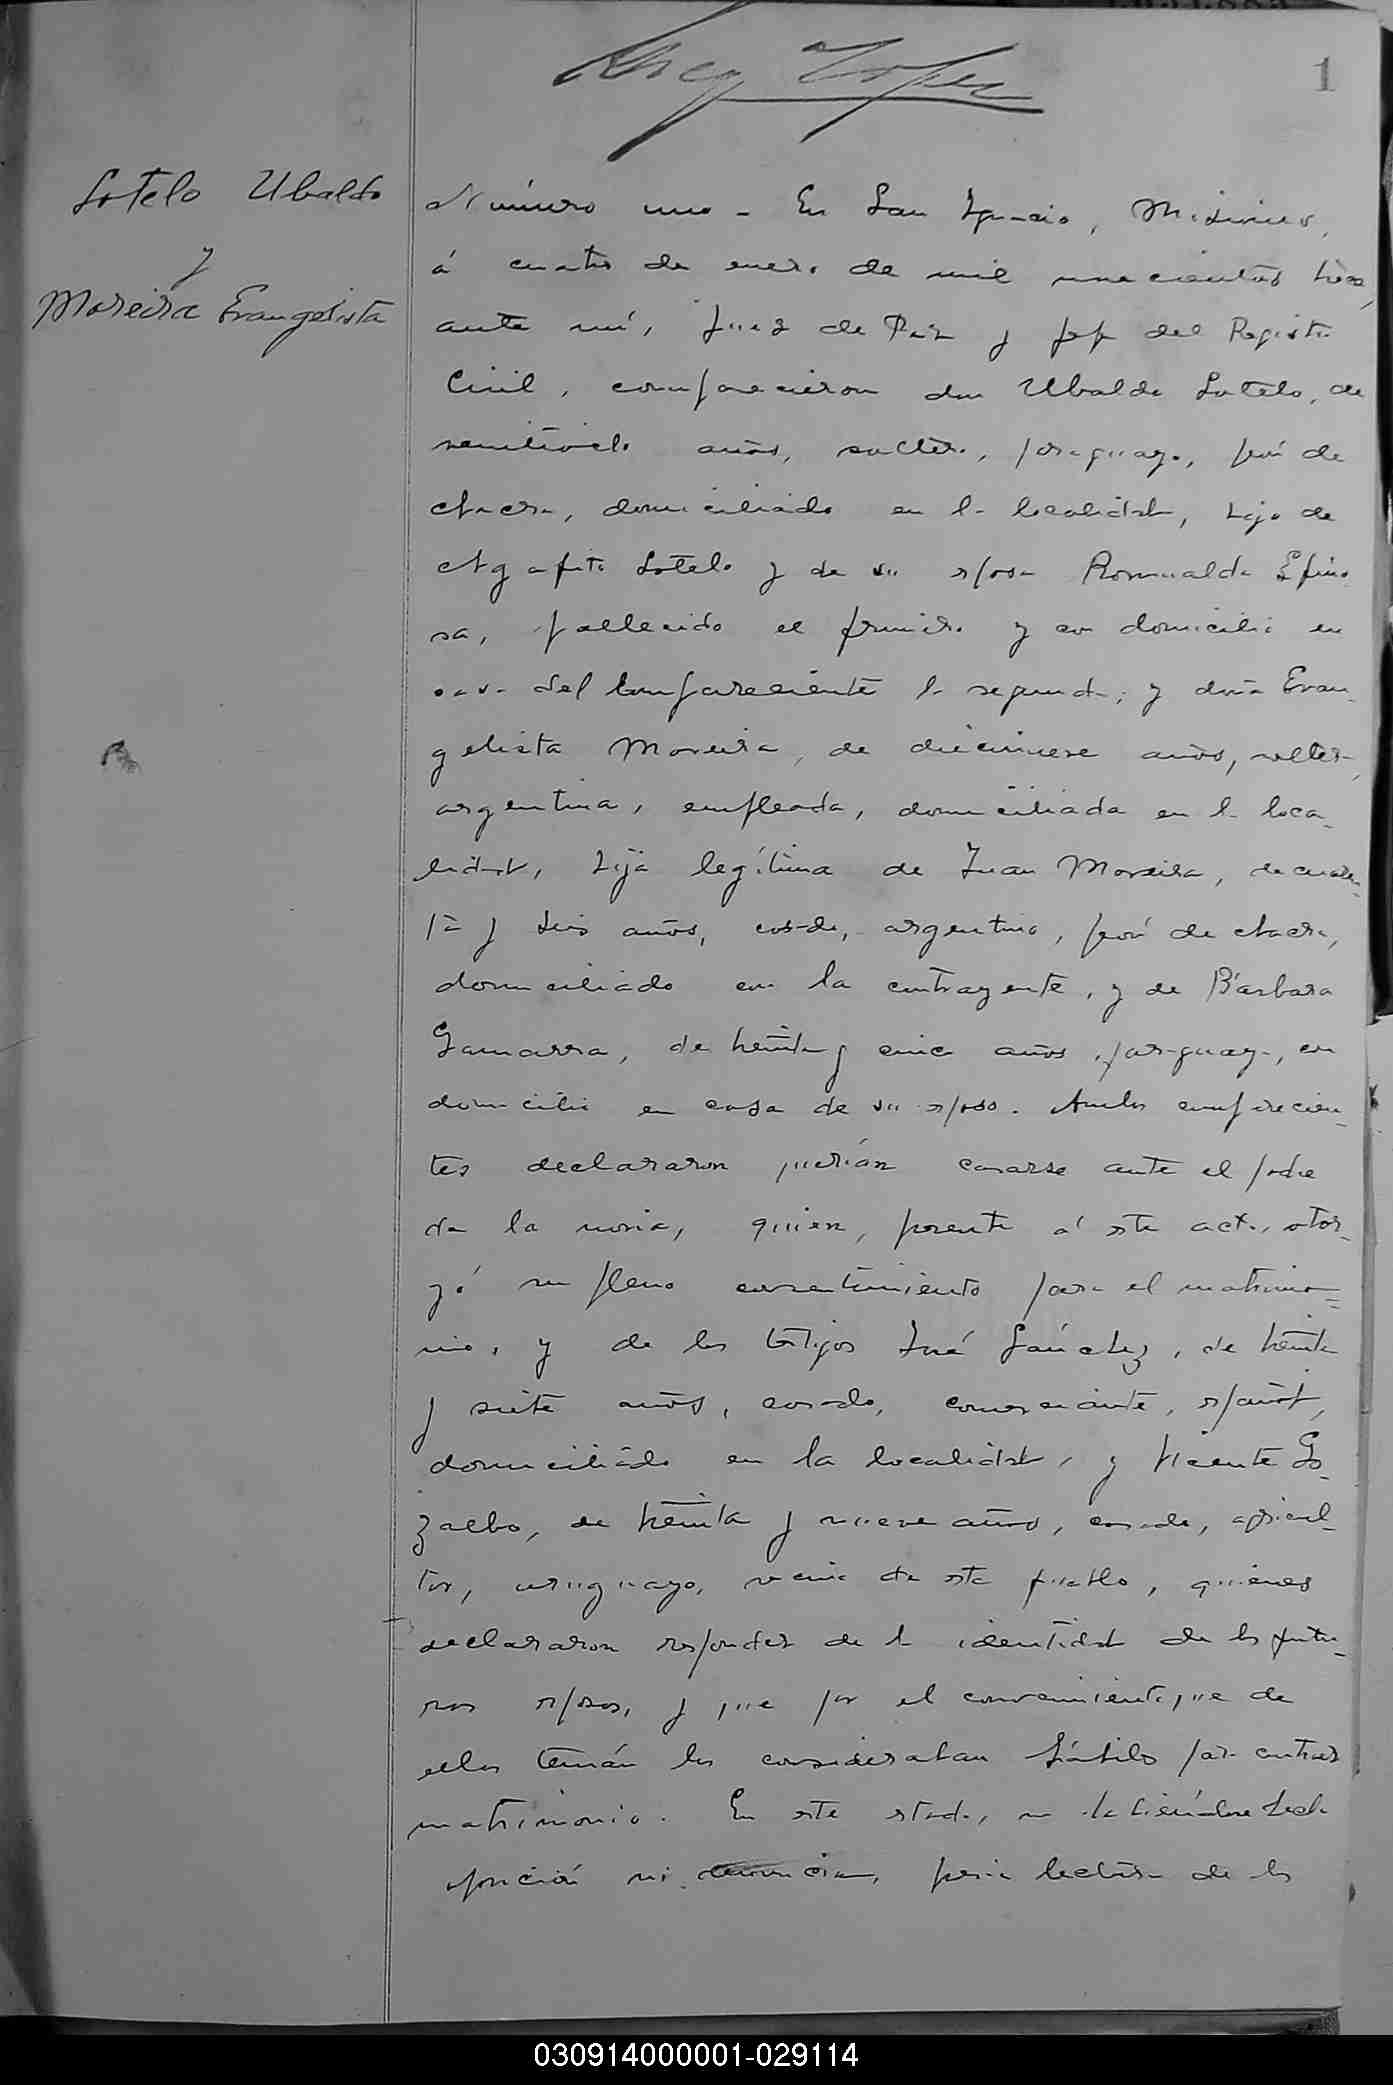 1
Sotelo Ubaldo
y
Moreira Evangelista
Número uno - En San Ignacio, Misiones,
á cuatro de enero de mil novecientos trece,
ante mí, Juez de Paz y jefe del Registro
Civil, comparecieron don Ubaldo Sotelo, de
veintiocho años, soltero, paraguayo, peón de
chacra, domiciliado en la localidad, hijo de
Agapito Sotelo y de su esposa Romualda Espino-
sa, fallecido el primero y con domicilio en
casa del compareciente la segunda; y doña Evan-
gelista Moreira, de diecinueve años, soltera,
argentina, empleada, domiciliada en la loca-
lidad, hija legítima de Juan Moreira, de cuaren-
ta y seis años, casado, argentino, peón de chacra,
domiciliado con la contrayente, y de Bárbara
Gamarra, de treinta y cinco años, paraguaya, con
domicilio en casa de su esposo. Ambos comparecien-
tes declararon querían casarse ante el padre
de la novia, quien, presente á este acto, otor-
gó su pleno consentimiento para el matrimo-
nio, y de los testigos José Sánchez, de treinta
y siete años, casado, comerciante, español,
domiciliado en la localidad, y Vicente Go-
zalbo, de treinta y nueve años, casado, agricul-
tor, uruguayo, vecino de este pueblo, quienes
declararon responder de la identidad de los futu-
ros esposos, y que por el conocimiento que de
ellos tenían los consideraban hábiles para contraer
matrimonio. En este estado, no habiéndose hecho
oposición ni denuncia, previa lectura de los
030914000001-029114